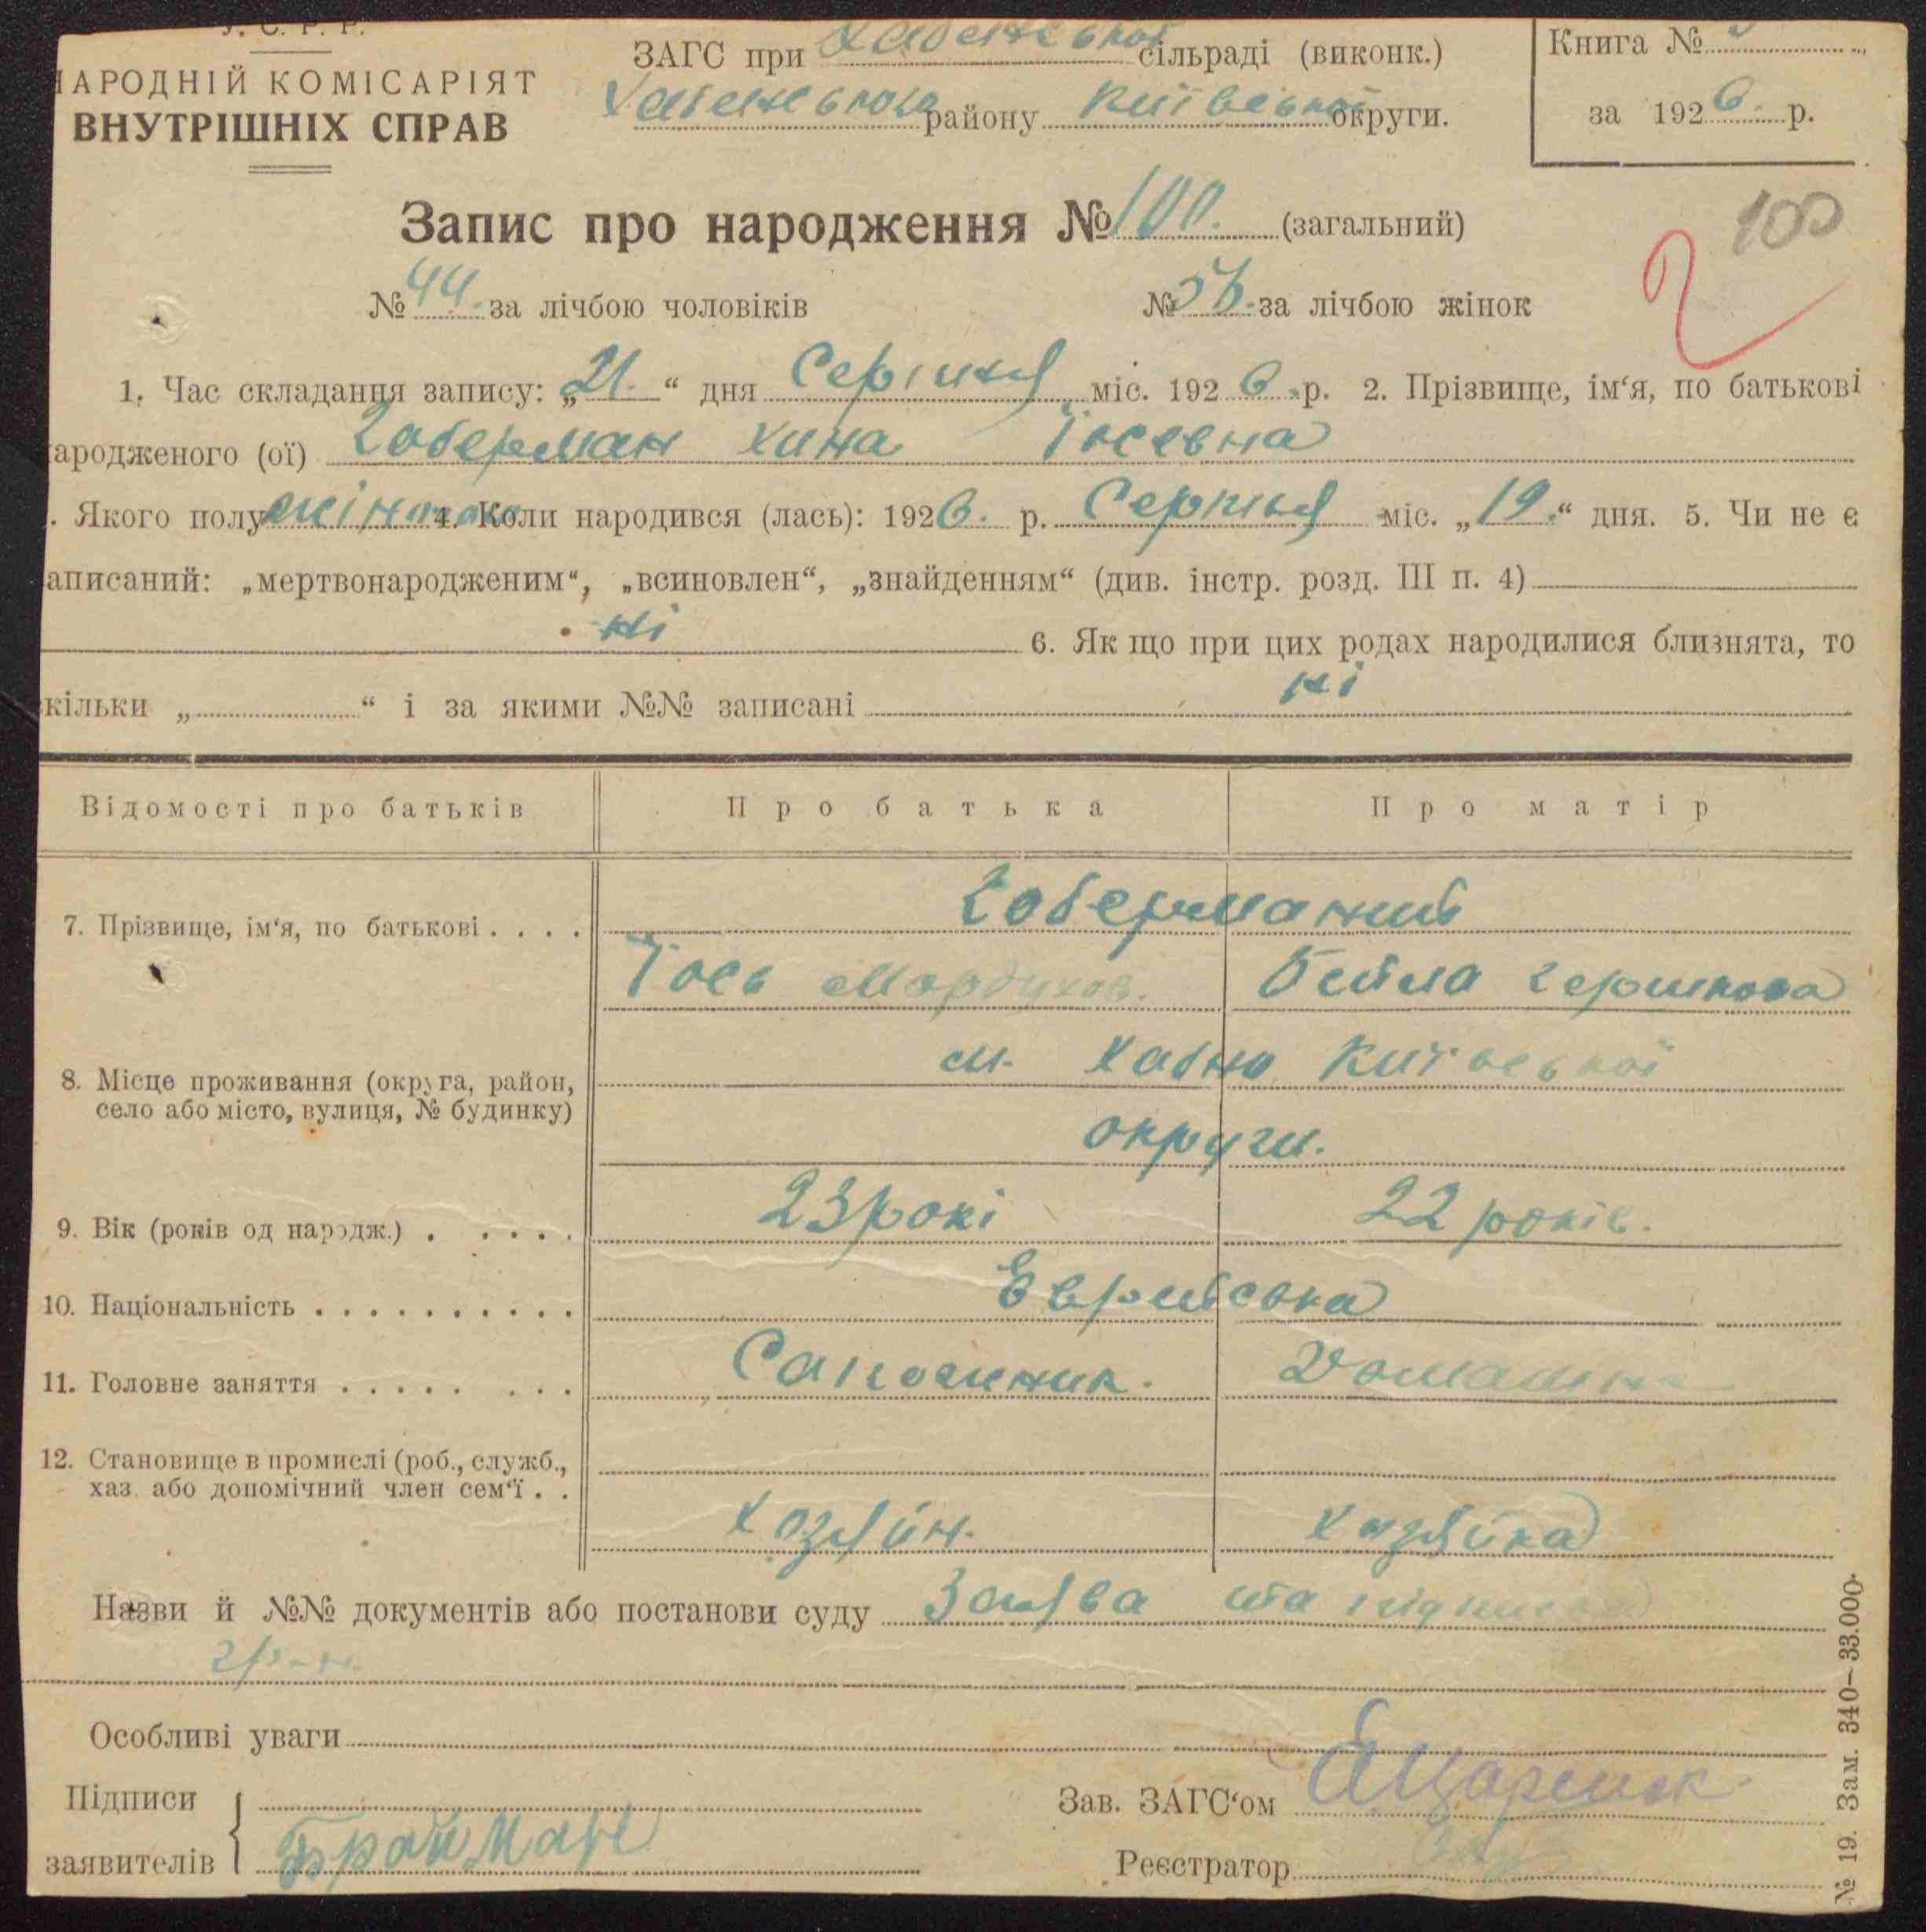 У. С. Р. Р.
НАРОДНІЙ КОМІСАРІЯТ
ВНУТРІШНІХ СПРАВ
ЗАГС при Хабенській сільраді (виконк.)
Хабенського району Київської округи.
Книга №
за 1926 р.
Запис про народження № 100. (загальний)
100
2
№ 44. за лічбою чоловіків № 56. за лічбою жінок
1. Час складання запису: „21.“ дня Серпня міс. 1926 р. 2. Прізвище, ім‘я, по батькові
ародженого (ої) Гоберман Хина Іосевна
. Якого полу жіночого 4. Коли народився (лась): 1926. р. Серпня міс. „19.“ дня. 5. Чи не є
аписаний: „мертвонародженим“, „всиновлен“, „знайденням“ (див. інстр. розд. III п. 4)
ні 6. Як що при цих родах народилися близнята, то
кільки „ “ і за якими №№ записані ні
Відомості про батьків Про батька Про матір
7. Прізвище, ім‘я, по батькові . . . . Гобермании
Іось Мордухов. Бейла Гершкова
8. Місце проживання (округа, район, м. Хабно Київської
село або місто, вулиця, № будинку) округи.
9. Вік (років од народж.) . . . . . 23 рокі 22 років.
10. Національність . . . . . . . . . . Еврейська
11. Головне заняття . . . . . . . . Сапожник. Домашн
12. Становище в промислі (роб., служб.,
хаз. або допомічний член сем‘ї . .
Хозяїн. Хазяйка
Назви й №№ документів або постанови суду Заява та підписка
гр-н.
Особливі уваги
Підписи
заявителів Брайман
Зав. ЗАГС‘ом
Реєстратор
№ 19. Зам. 340–33.000.